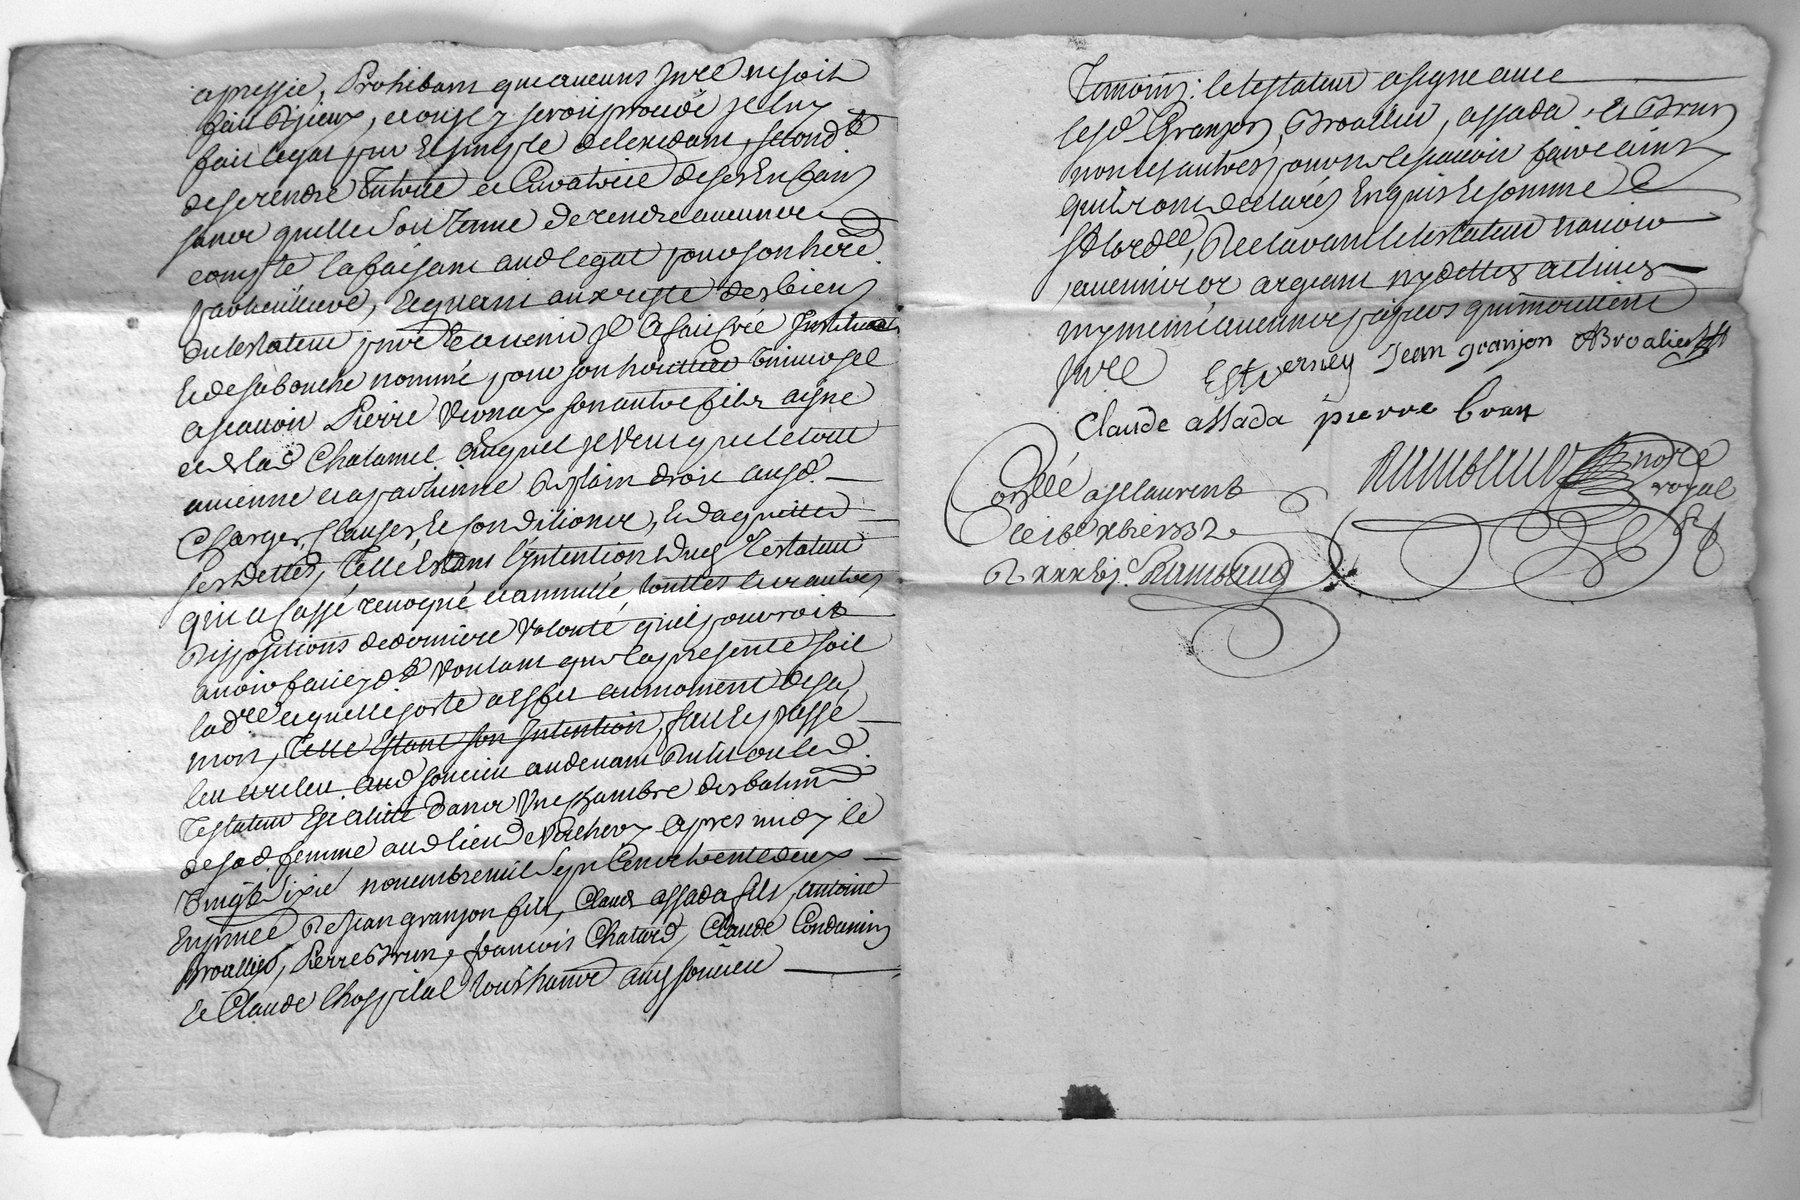 apressié, Prohibant que aucuns Invre ne soit
fait d'Iceux, et ou il y seroit proceddé Il luy
fait legat sur de de lexedant, second
de se rendre Tutrice et Curatrice de ses Enfans
sans quelle Soit Tenue de rendre aucunne
compte la faisant aud legat pour son hered
particuliere, Et quant aux reste des biens
du testateur Il a fait crée Institué
et de sa bouche nommé pour son heritier Universel
ascavoir Pierre Vernay son autre fils aisné
et de lad Chatamel Auquel Il Veut que le tout
avienne et apartienne De plain droit aux d.
Charges, Clauses, et Conditions, et daquitter
ses Dettes, Telle Estans l'Intention dud Testateur
qui a Cassé revoqué et annullé touttes leurs autres
Dispositions de derniere Volonté quil pourroit
avoir faites Voulant que la presente soit
la d et quelle sorte a effet au moment de sa
mort, Telle Estant son Intention, fait et passé
leu et releu aud soucieu audevant ou led.
Testateur Est alitté dans Une Chambre des batim
de sad. femme aud lieu de Verchery apres midy le
Vingt Sixie novembre mil Sept Cent trente deux
En pnce De Jean granjon fils, Claude assada fils, antoine
Broallier, Pierre Brun, francois Chatard, Claude Condamin
et Claude Lhospital tous hants aud soucieu
Temoins: le testateur a signe avec
lesd. Granjon, Broallier, assada, et Brun
non les autres pour ne le scavoir faire ainsi
quils ont declarés Enquis et somme
Declarant le testateur navoir
aucunne or argeant ny dettes actives
ny meme aucunnes papiers qui meritent
Invre Est verney Jean granjon ABroalier
Claude assada pierre brun
Rambaud nore
royal
Conllé a St laurent
le 16e xbre 1732
R xxx Rambaud